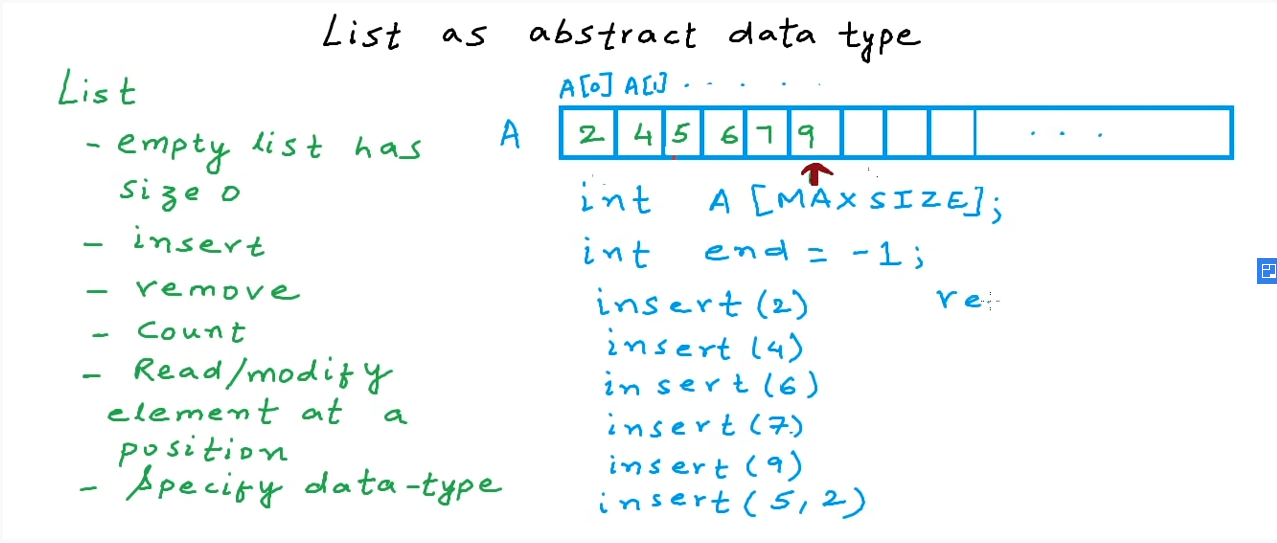 List as abstract data type
List
- empty list has
size 0
- insert
- remove
- Count
- Read/modify
element at a
position
- Specify data-type
A[0] A[1] . . . . .
A 2 4 5 6 7 9 . . .
int A [MAXSIZE];
int end = -1;
insert (2) re
insert (4)
insert (6)
insert (7)
insert (9)
insert (5, 2)